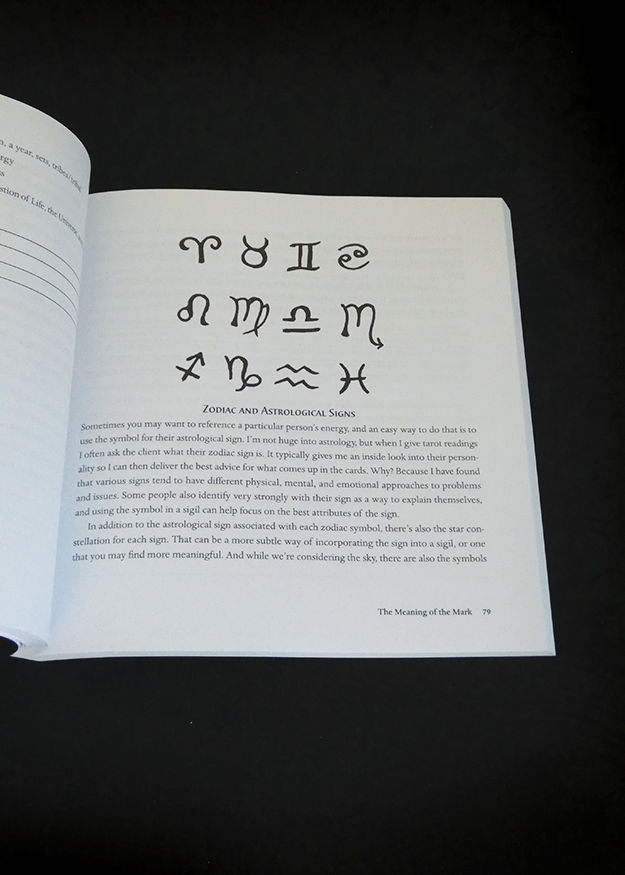 a year, sets, tribes/tribal,
stion of Life, the Universe,
♈ ♉ ♊ ♋
♌ ♍ ♎ ♏
♐ ♑ ♒ ♓
Zodiac and Astrological Signs
Sometimes you may want to reference a particular person's energy, and an easy way to do that is to
use the symbol for their astrological sign. I'm not huge into astrology, but when I give tarot readings
I often ask the client what their zodiac sign is. It typically gives me an inside look into their person-
ality so I can then deliver the best advice for what comes up in the cards. Why? Because I have found
that various signs tend to have different physical, mental, and emotional approaches to problems
and issues. Some people also identify very strongly with their sign as a way to explain themselves,
and using the symbol in a sigil can help focus on the best attributes of the sign.
In addition to the astrological sign associated with each zodiac symbol, there's also the star con-
stellation for each sign. That can be a more subtle way of incorporating the sign into a sigil, or one
that you may find more meaningful. And while we're considering the sky, there are also the symbols
The Meaning of the Mark 79